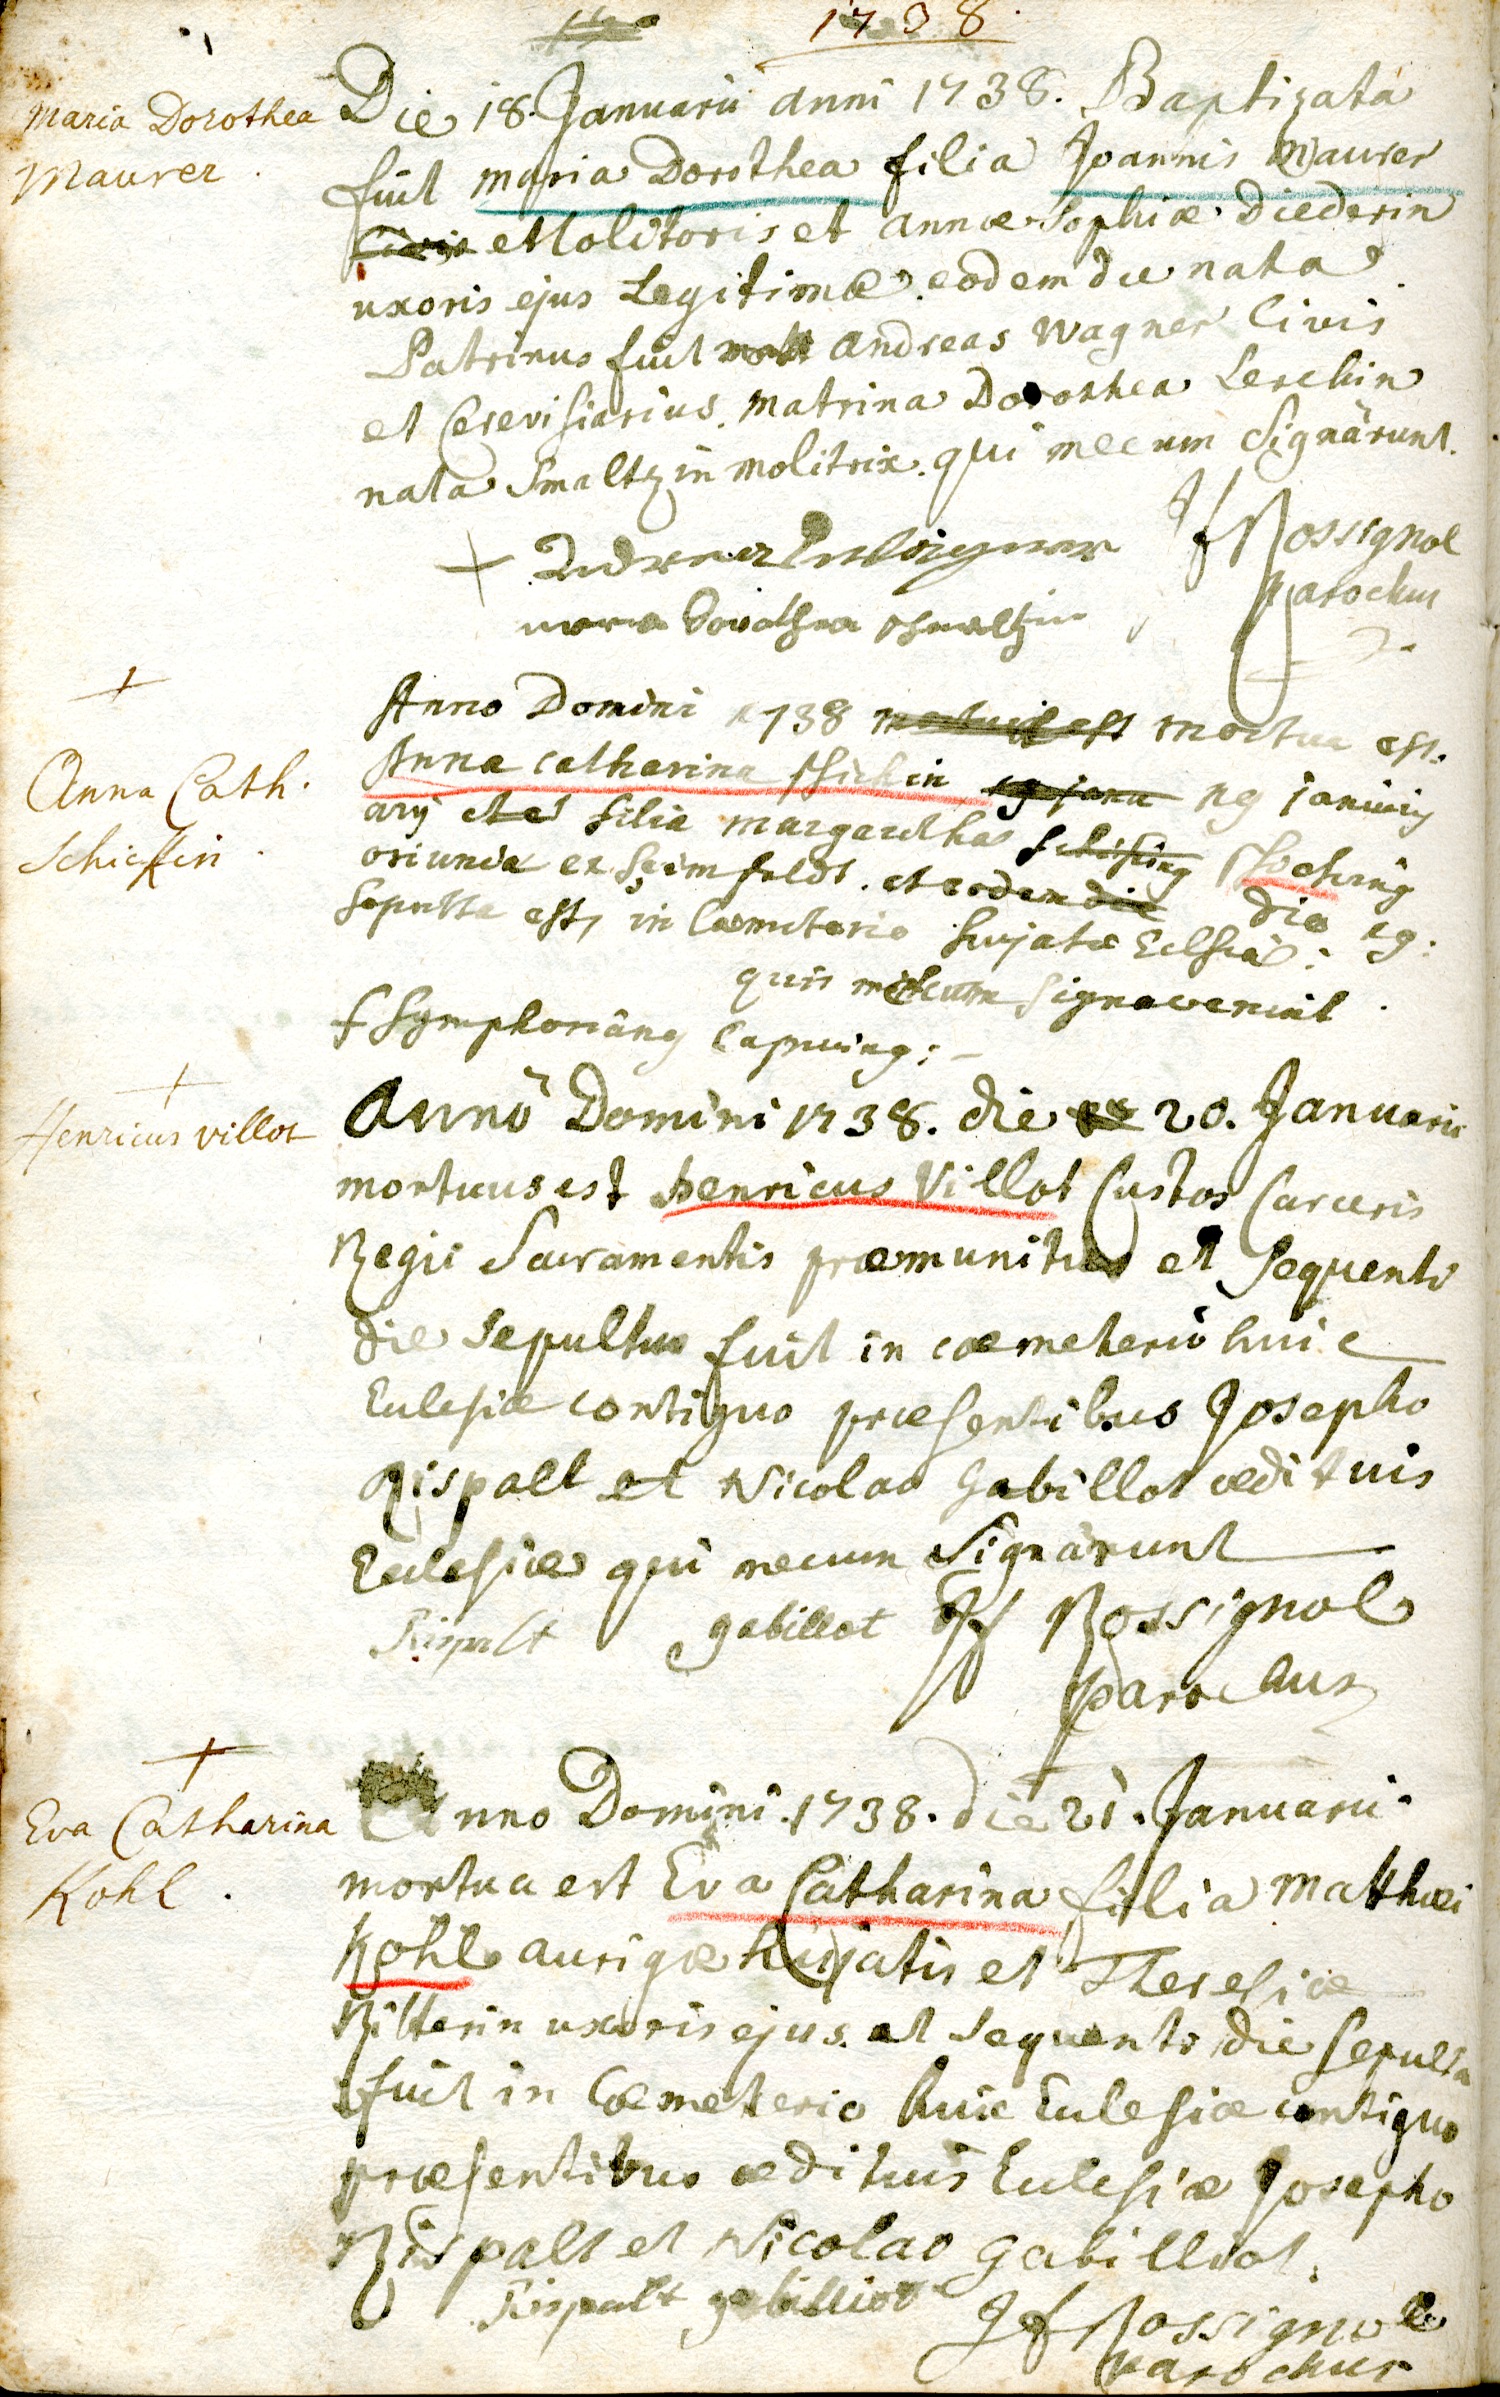 1738.
Maria Dorothea
Maurer.
Die 18. Januarii anni 1738. Baptizata
fuit maria Dorothea filia Joannis Maurer
Molitoris et annæ Sophiæ Diederin
uxoris ejus Legitimæ. eodem die nata.
Patrinus fuit andreas Wagner Civis
et Cerevisiarius. matrina Dorothea Lerchin
nata Smaltzin molitrix. qui mecum signârunt.
+
maria Dorothea Schmaltzin
Jf Rossignol
parochus
+
Anna Cath.
Schickin.
Anno Domini 1738 mortua est.
Anna catharina Schickin 19
filia margaretha
oriunda ex et eodem die 19:
sepulta est, in Coemeterio hujatæ
qui mecum signaverunt.
f Symphorianus Capucing:
+
Henricus villot
Annô Domini 1738. die 20. Januarii
mortuus est henricus Villot Custos Carceris
Regii Sacramentis præmunitus et sequenti
die sepultus fuit in cœmeterio huic
Eclesiæ contiguo præsentibus Josepho
Rispalt et Nicolao Gabillot ædituis
Ecclesiæ qui mecum signârunt
Rispalt gabillot Jf Rossignol
parochus
+
Eva Catharina
Kohl.
Anno Domini. 1738. die 21. Januarii.
mortua est Eva Catharina filia Matthæi
Kohl aurigæ hujatis et Theresiæ
Ritterin uxoris ejus. et sequenti die sepulta
fuit in Cœmeterio huic Eclesiæ contiguo
præsentibus ædituis Eclesiæ Josepho
Rispalt et Nicolao Gabilliot.
Rispalt gabilliot Jf Rossignol
parochus